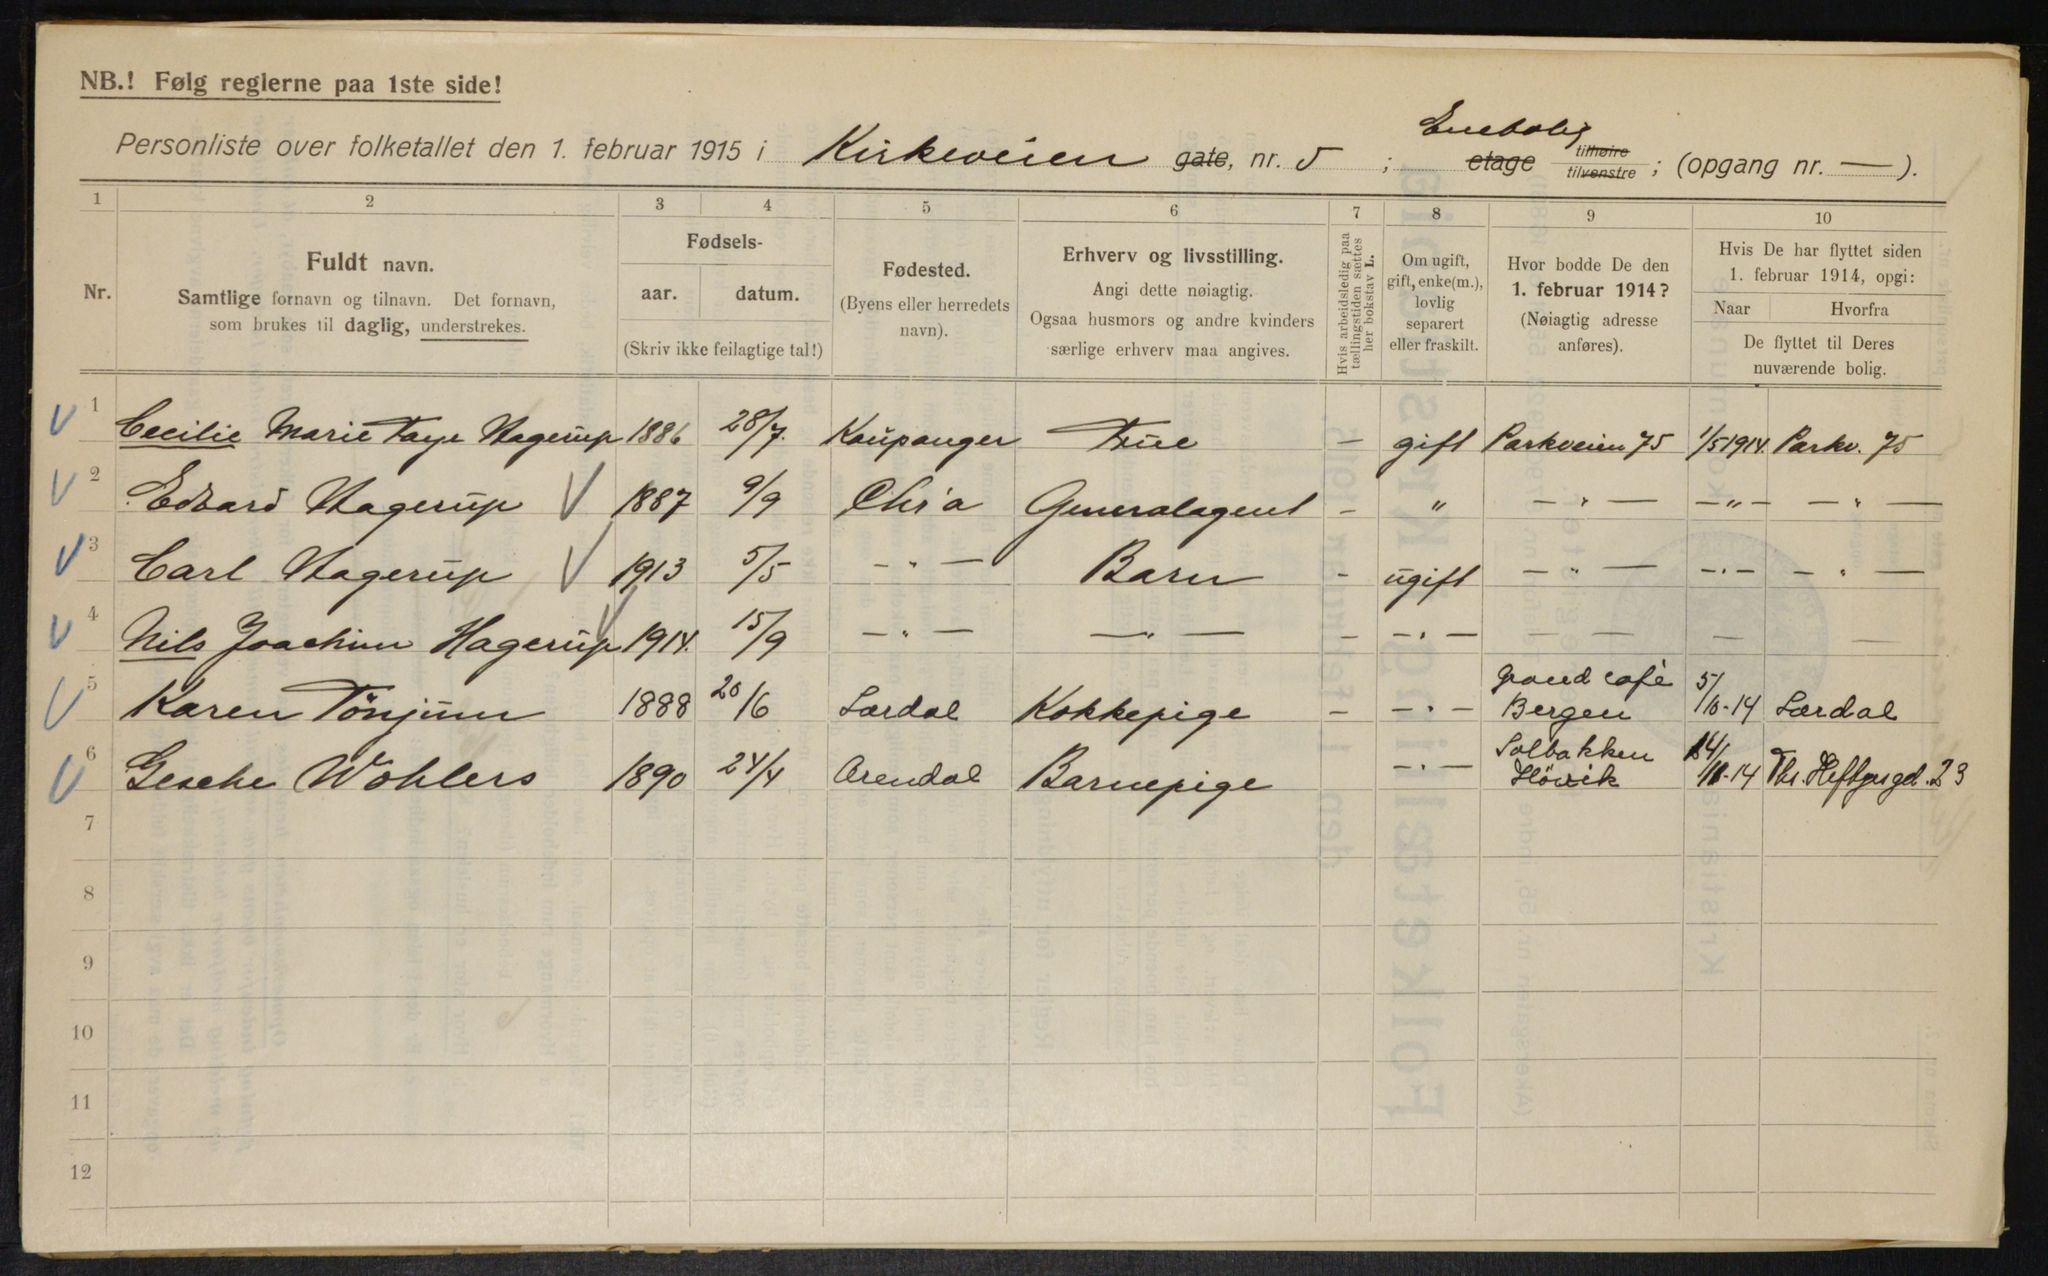 NB.! Følg reglerne paa 1ste side!
Enebolig
Personliste over folketallet den 1. februar 1915 i Kirkeveien gate, nr. 5 ; etage tilhøire tilvenstre ; (opgang nr. — ).
1 2 3 4 5 6 7 8 9 10
Nr.
Fuldt navn.
Samtlige fornavn og tilnavn. Det fornavn,
som brukes til daglig, understrekes.
Fødsels-
aar. datum.
(Skriv ikke feilagtige tal!)
Fødested.
(Byens eller herredets
navn).
Erhverv og livsstilling.
Angi dette nøiagtig.
Ogsaa husmors og andre kvinders
særlige erhverv maa angives.
Hvis arbeidsledig paa
tællingstiden sættes
her bokstav L.
Om ugift,
gift, enke(m.),
lovlig
separert
eller fraskilt.
Hvor bodde De den
1. februar 1914?
(Nøiagtig adresse
anføres).
Hvis De har flyttet siden
1. februar 1914, opgi:
Naar Hvorfra
De flyttet til Deres
nuværende bolig.
1 Cecilie Marie Faye Hagerup 1886 28/7. Kaupanger Frue — gift Parkveien 75 1/5 1914. Parkv. 75
2 Edvard Hagerup 1887 9/9 Chr'a Generalagent — " — " — — " — — " —
3 Carl Hagerup 1913 5/5 — " — Barn — ugift — " — — " — — " —
4 Nils Joachim Hagerup 1914. 15/9 — " — — " — — — " — — — — —
5 Karen Tönjum 1888 20/6 Lærdal Kokkepige — — " — Grand café Bergen 5/10-14 Lærdal
6 Gesche Wohlers 1890 24/4 Arendal Barnepige — " — Solbakken Hövik -14 Th. Heftyesgd. 23
7
8
9
10
11
12